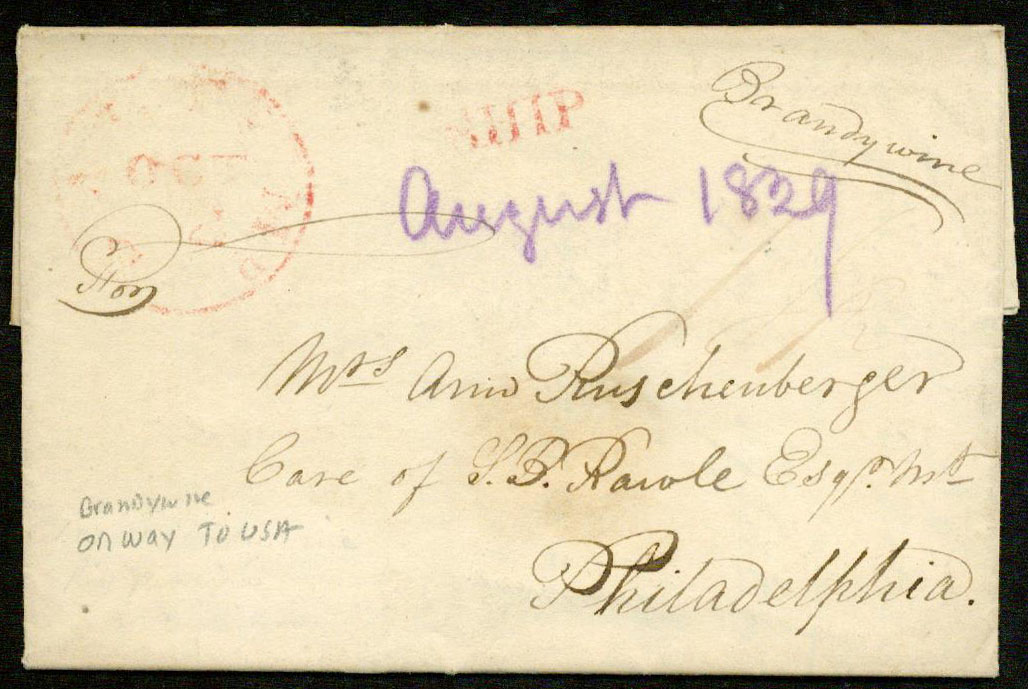 Brandywine
SHIP
OCT
August 1829
For
Mrs Ann Ruschenberger
Care of S. B. Rawle Esqr. Mt
Philadelphia.
Brandywine
on way to USA